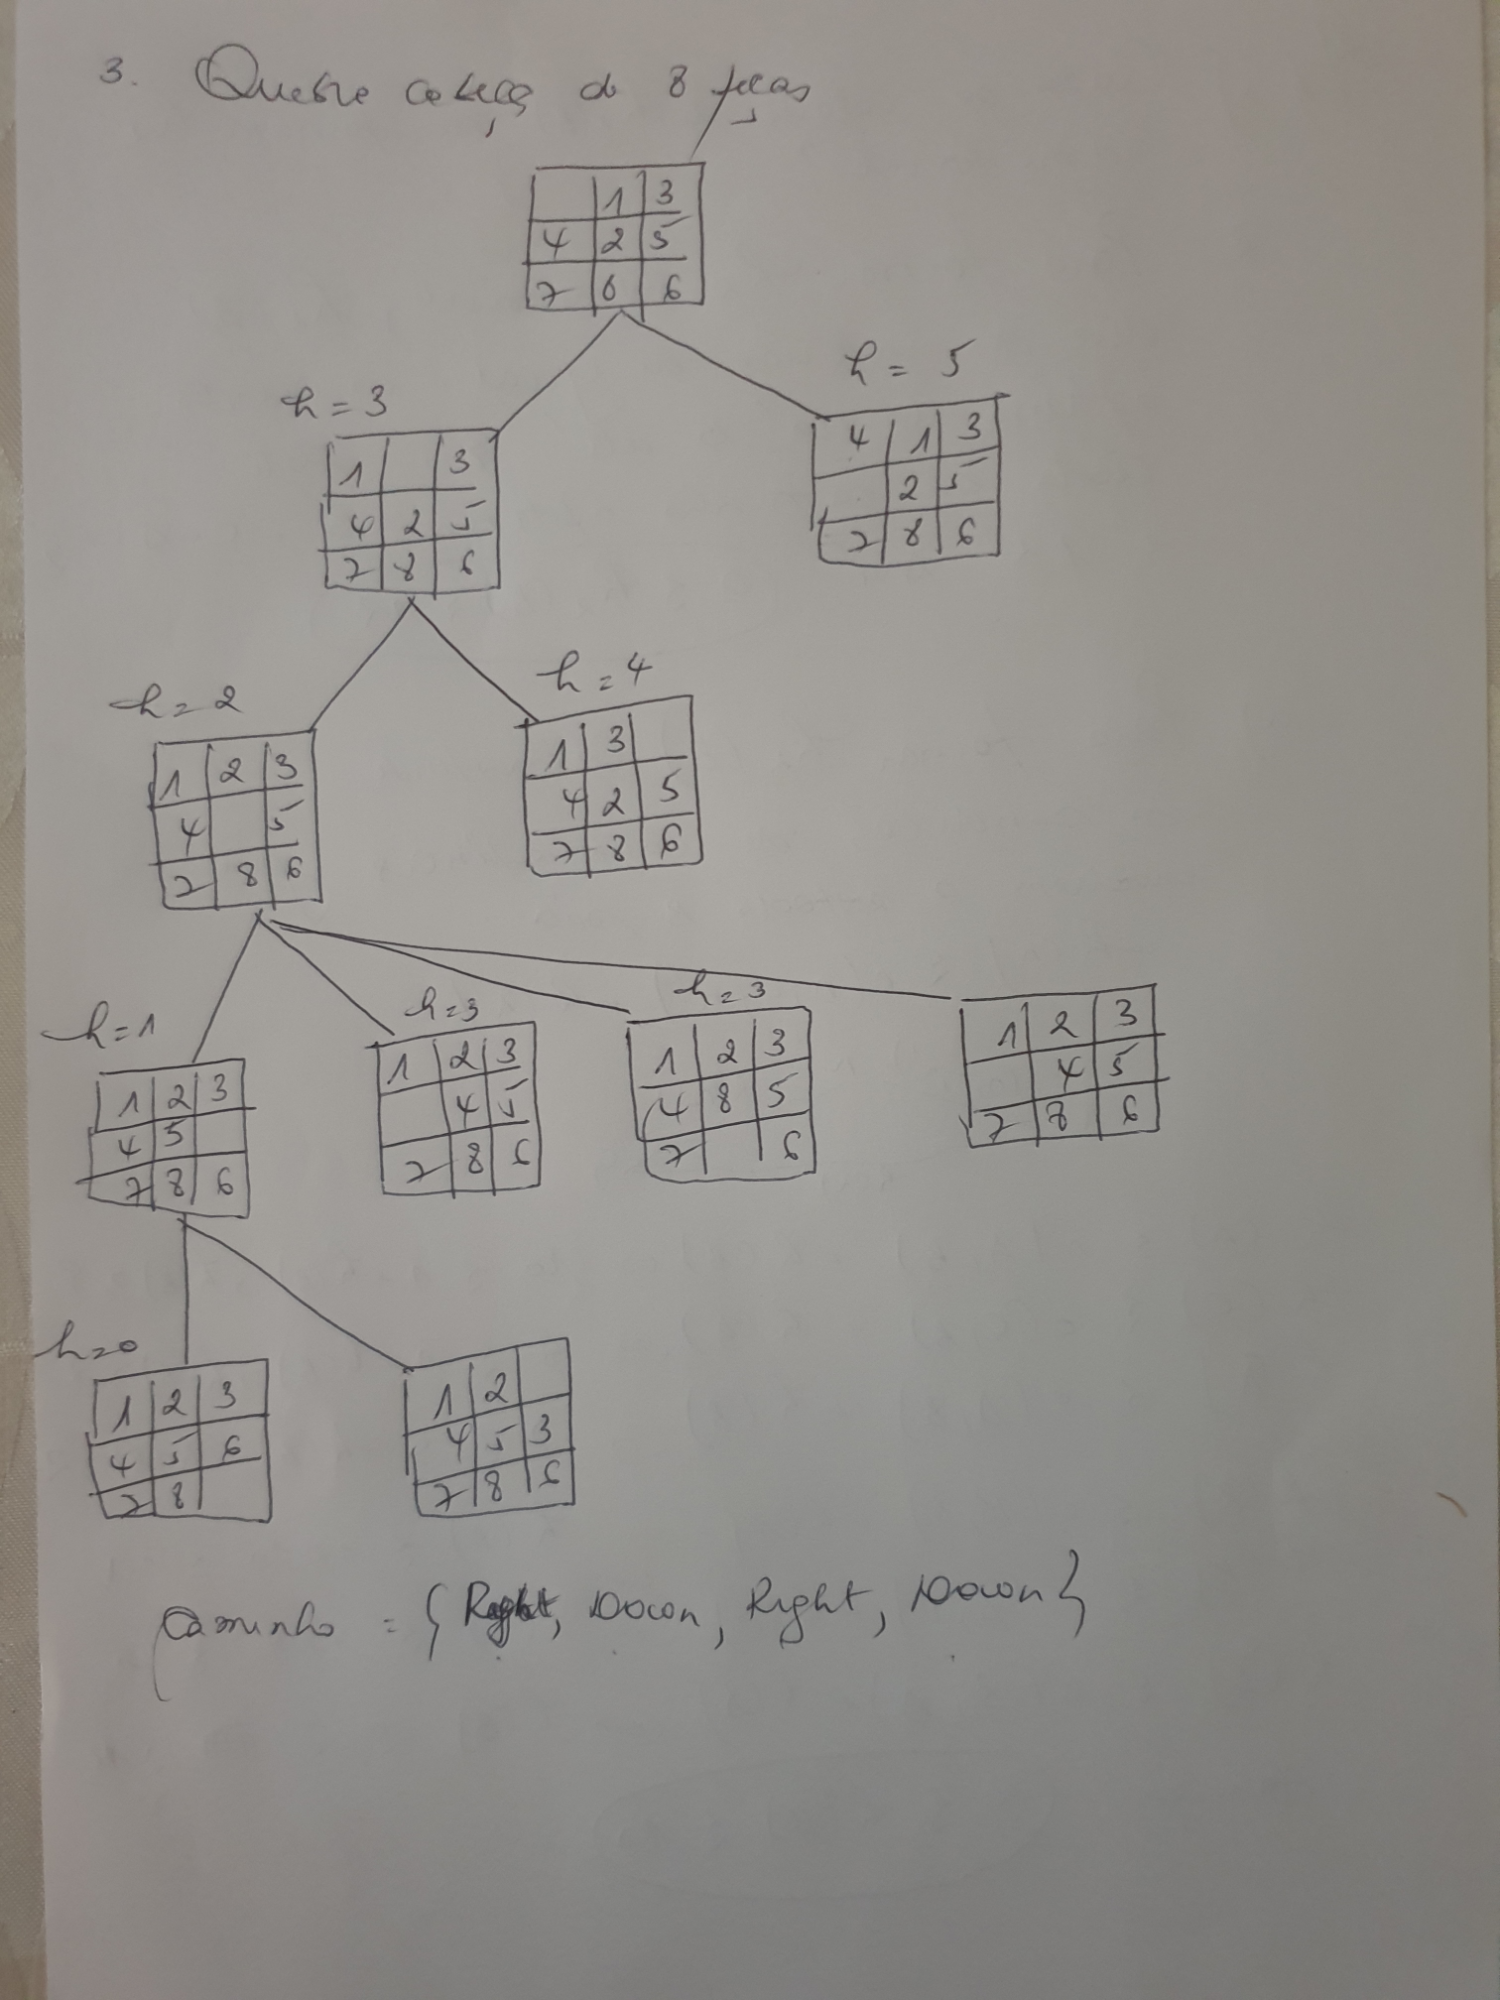 3. Quebre cabeça do 8 peças
1 3
4 2 5
7 8 6
h = 3
h = 5
1 3
4 2 5
7 8 6
4 1 3
2 5
7 8 6
h = 2
h = 4
1 2 3
4 5
7 8 6
1 3
4 2 5
7 8 6
h = 1
h = 3
h = 3
1 2 3
4 5
7 8 6
1 2 3
4 5
7 8 6
1 2 3
4 8 5
7 6
1 2 3
4 5
7 8 6
h = 0
1 2 3
4 5 6
7 8
1 2
4 5 3
7 8 6
Caminho = {Right, Down, Right, Down}